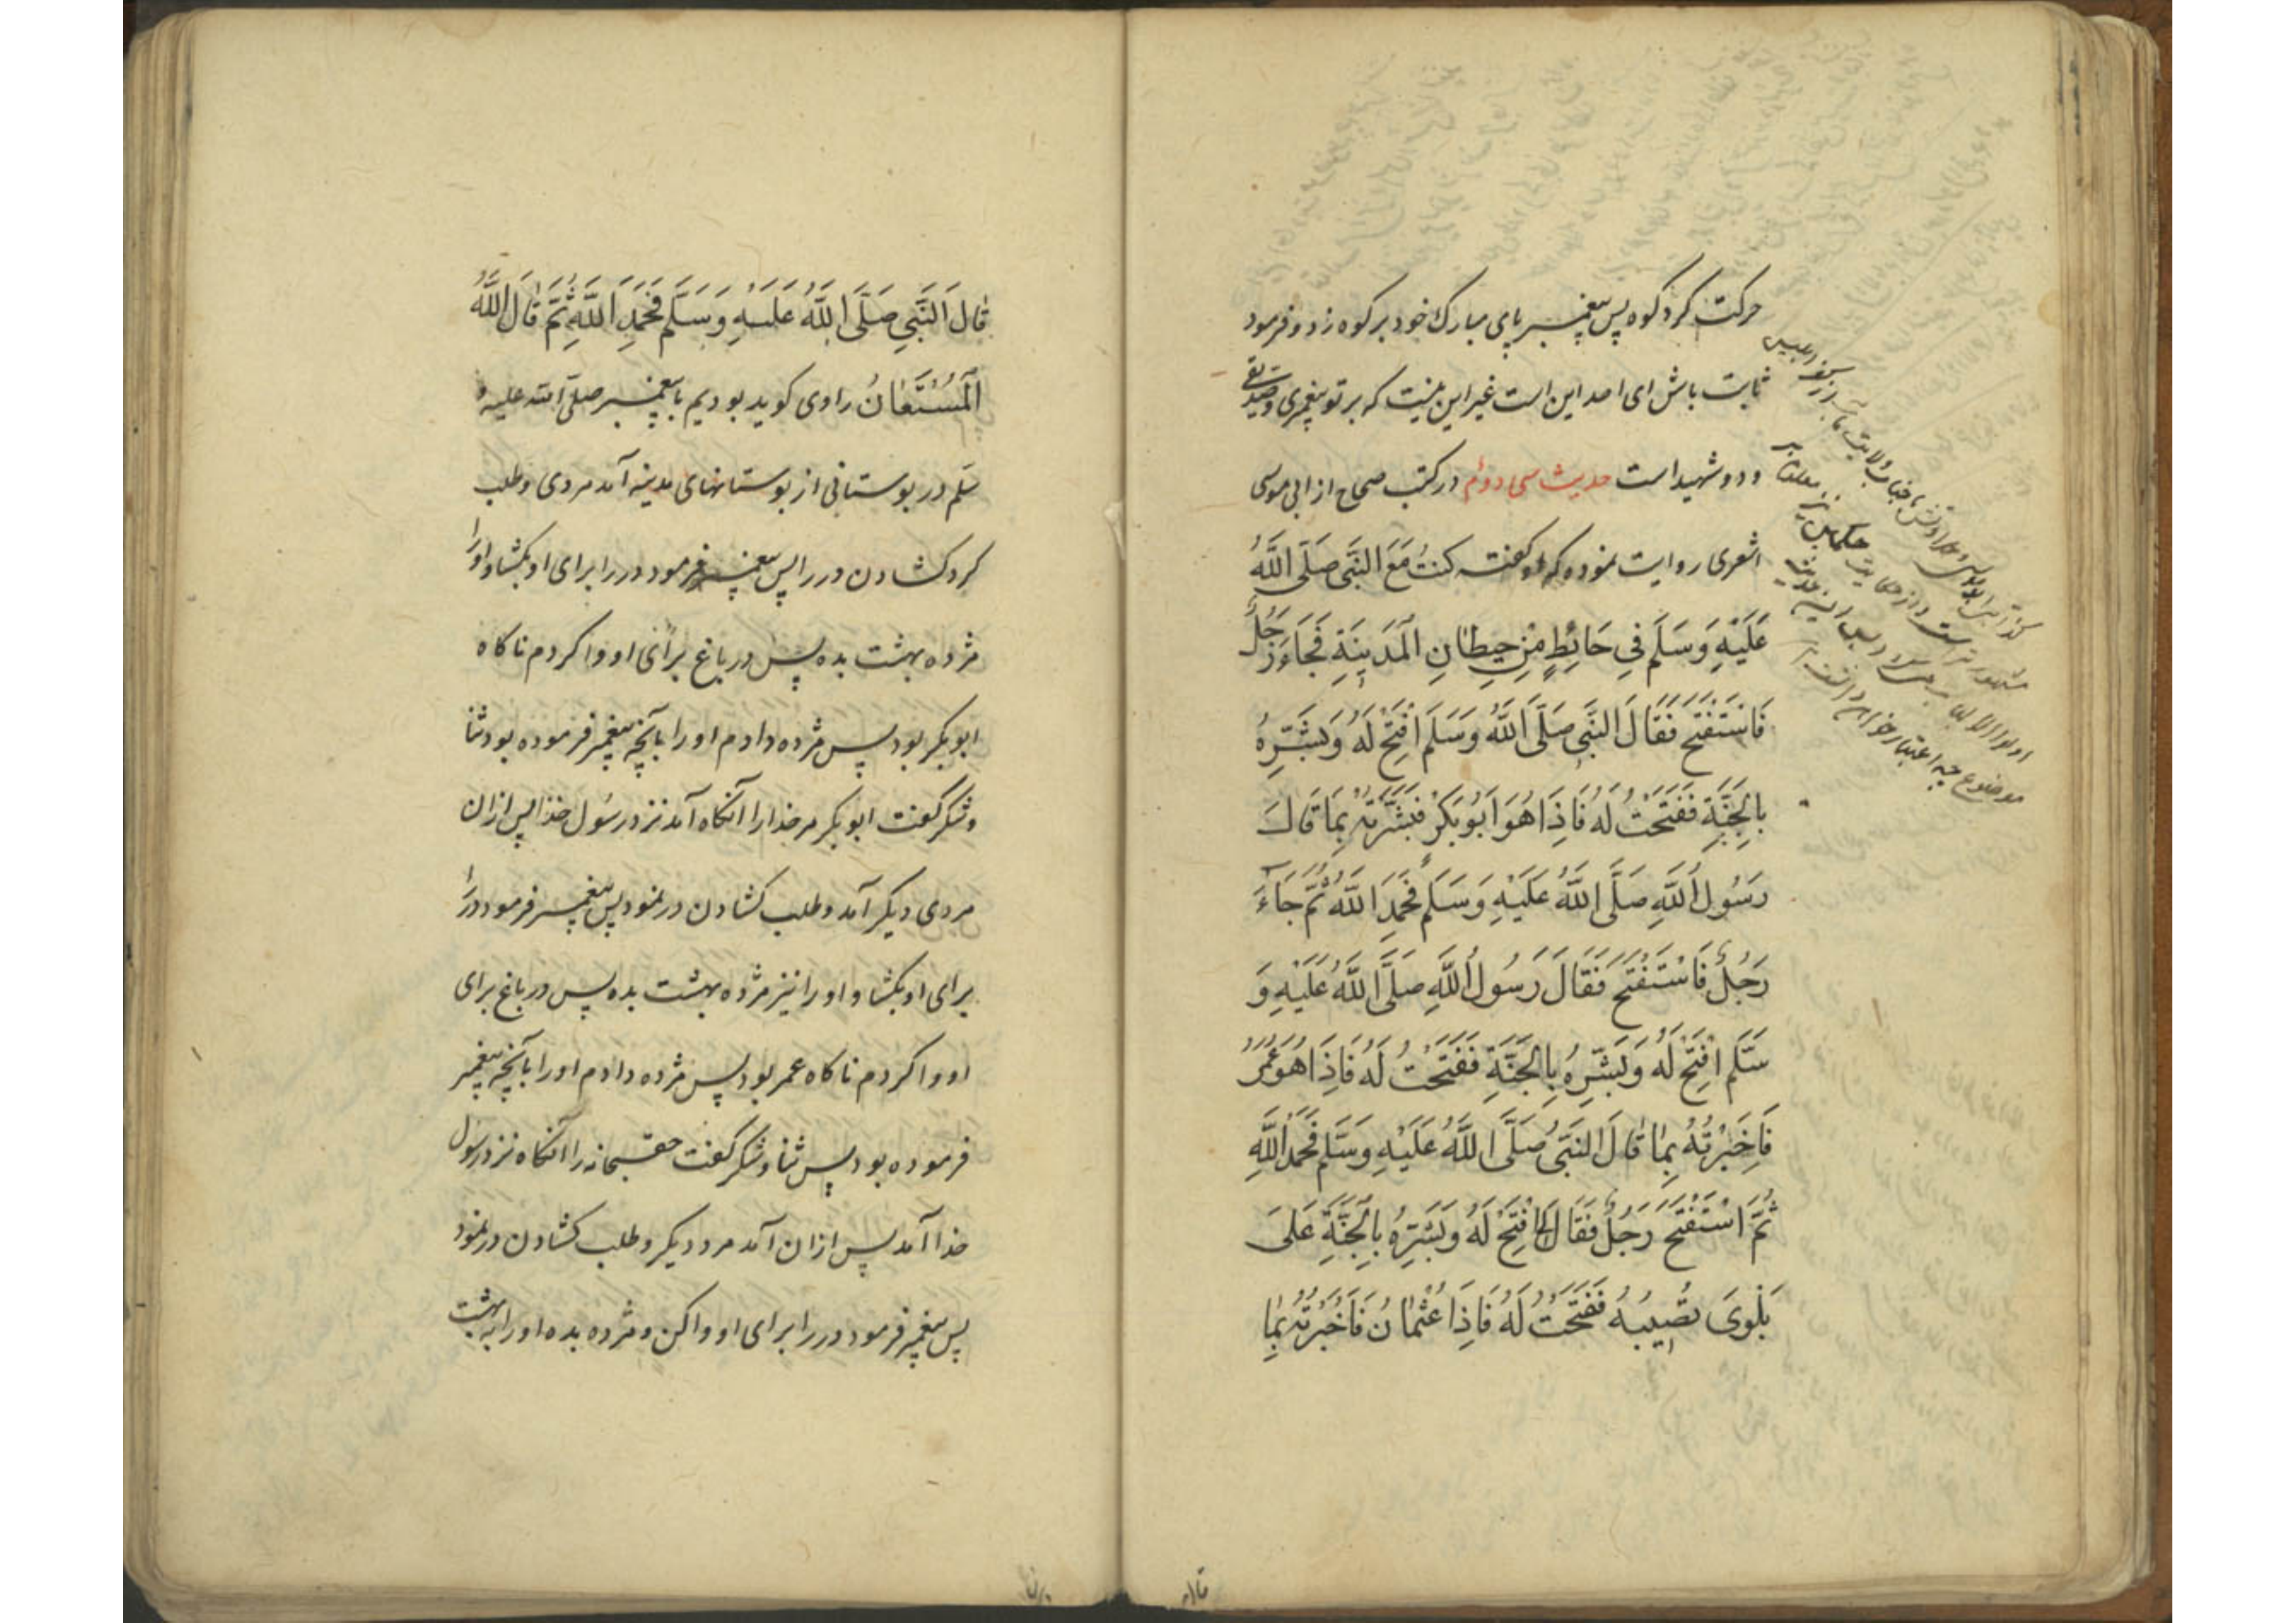 حرکت کرد کوه پس پیغمبر پای مبارک خود بر کوه زد و فرمود
ثابت باش ای احد این است غیر این نیست که بر تو پیغمبری و صدیقی
و دو شهید است حدیث سی دوام در کتب صحاح از ابی موسی
اشعری روایت نموده که او گفته کنتُ مَعَ النَّبِی صَلَّی اللَّهُ
عَلَیْهِ وَسَلَّمَ فِی حَائِطٍ مِنْ حِیطَانِ الْمَدِینَةِ فَجَاءَ رَجُلٌ
فَاسْتَفْتَحَ فَقَالَ النَّبِی صَلَّی اللَّهُ وَسَلَّمَ افْتَحْ لَهُ وَبَشِّرْهُ
بِالْجَنَّةِ فَفَتَحْتُ لَهُ فَاِذَا هُوَ اَبُوبَکْرٍ فَبَشَّرْتُهُ بِمَا قَالَ
رَسُولُ اللَّهِ صَلَّی اللَّهُ عَلَیْهِ وَسَلَّمَ فَحَمِدَ اللَّهَ ثُمَّ جَاءَ
رَجُلٌ فَاسْتَفْتَحَ فَقَالَ رَسُولُ اللَّهِ صَلَّی اللَّهُ عَلَیْهِ وَ
سَلَّم افْتَحْ لَهُ وَبَشِّرْهُ بِالْجَنَّةِ فَفَتَحْتُ لَهُ فَاِذَا هُوَ عُمَرُ
فَاَخْبَرْتُهُ بِمَا قَالَ النَّبِیُّ صَلَّی اللَّهُ عَلَیْهِ وَسَلَّم فَحَمِدَ اللَّهَ
ثُمَّ اسْتَفْتَحَ رَجُلٌ فَقَالَ لِی افْتَحْ لَهُ وَبَشِّرْهُ بِالْجَنَّةِ عَلَی
بَلْوَی تُصِیبُهُ فَفَتَحْتُ لَهُ فَاِذَا عُثْمَانُ فَاَخْبَرْتُهُ بِمَا
قَالَ النَّبِی صَلَّی اللَّهُ عَلَیْهِ وَسَلَّم فَحَمِدَ اللَّهَ ثُمَّ قَالَ اللَّهُ
الْمُسْتَعَانُ راوی کوید بودیم با پیغمبر صلی الله علیه و
سلم در بوستانی از بوستانهای مدینه آمد مردی و طلب
کرد کشادن در را پس پیغمبر فرمود در را برای او بکشا و او را
مژده بهشت بده پس در باغ برای او وا کردم ناکاه
ابوبکر بود پس مژده دادم او را بآنچه پیغمبر فرموده بود ثنا
و شکر گفت ابوبکر مر خدا را آنکاه آمد نزد رسول خدا پس ازان
مردی دیکر آمد و طلب کشادن در نمود پس پیغمبر فرمود در را
برای او بکشا و او را نیز مژده بهشت بده پس در باغ برای
او وا کردم ناکاه عمر بود پس مژده دادم او را بآنچه پیغمبر
فرموده بود پس ثنا و شکر گفت حقسبحانه را آنکاه نزد رسول
خدا آمد پس ازان آمد مرد دیکر و طلب کشادن در نمود
پس پیغمبر فرمود در را برای او وا کن و مژده بده او را به بهشت